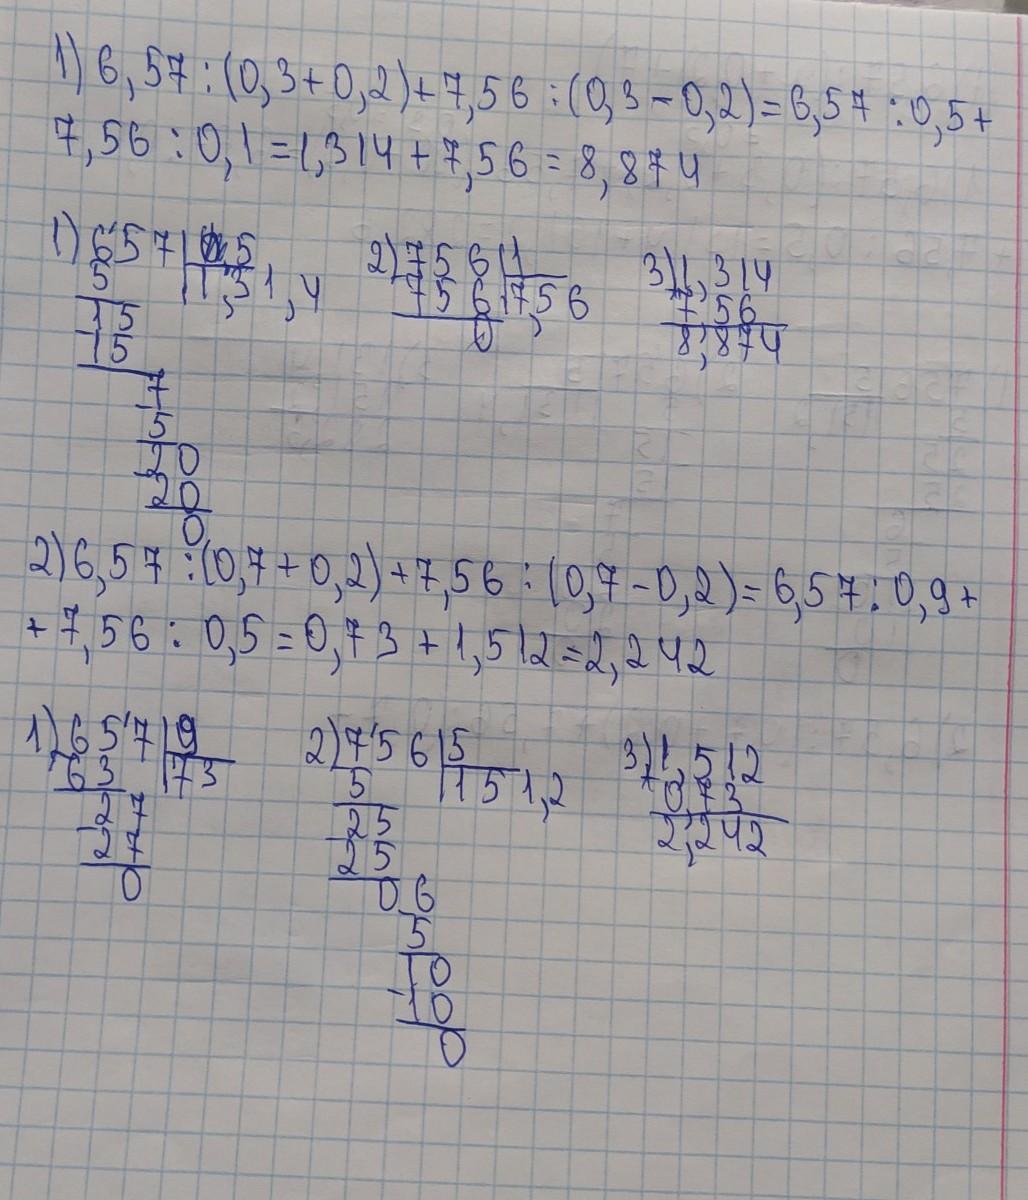 1) 6,57 : (0,3 + 0,2) + 7,56 : (0,3 - 0,2) = 6,57 : 0,5 +
7,56 : 0,1 = 1,314 + 7,56 = 8,874
1) 657 | 5
5
1,31,4
15
15
7
5
20
20
0
2) 756 | 1
756 7,56
0
3) 1,314
+ 7,56
8,874
2) 6,57 : (0,7 + 0,2) + 7,56 : (0,7 - 0,2) = 6,57 : 0,9 +
+ 7,56 : 0,5 = 0,73 + 1,512 = 2,242
1) 657 | 9
63 73
27
27
0
2) 756 | 5
5 151,2
25
25
06
5
10
10
0
3) 1,512
+ 0,73
2,242